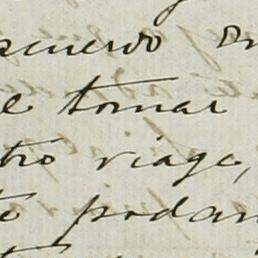 acuerdo en
e tomar
tro viage,
te podam